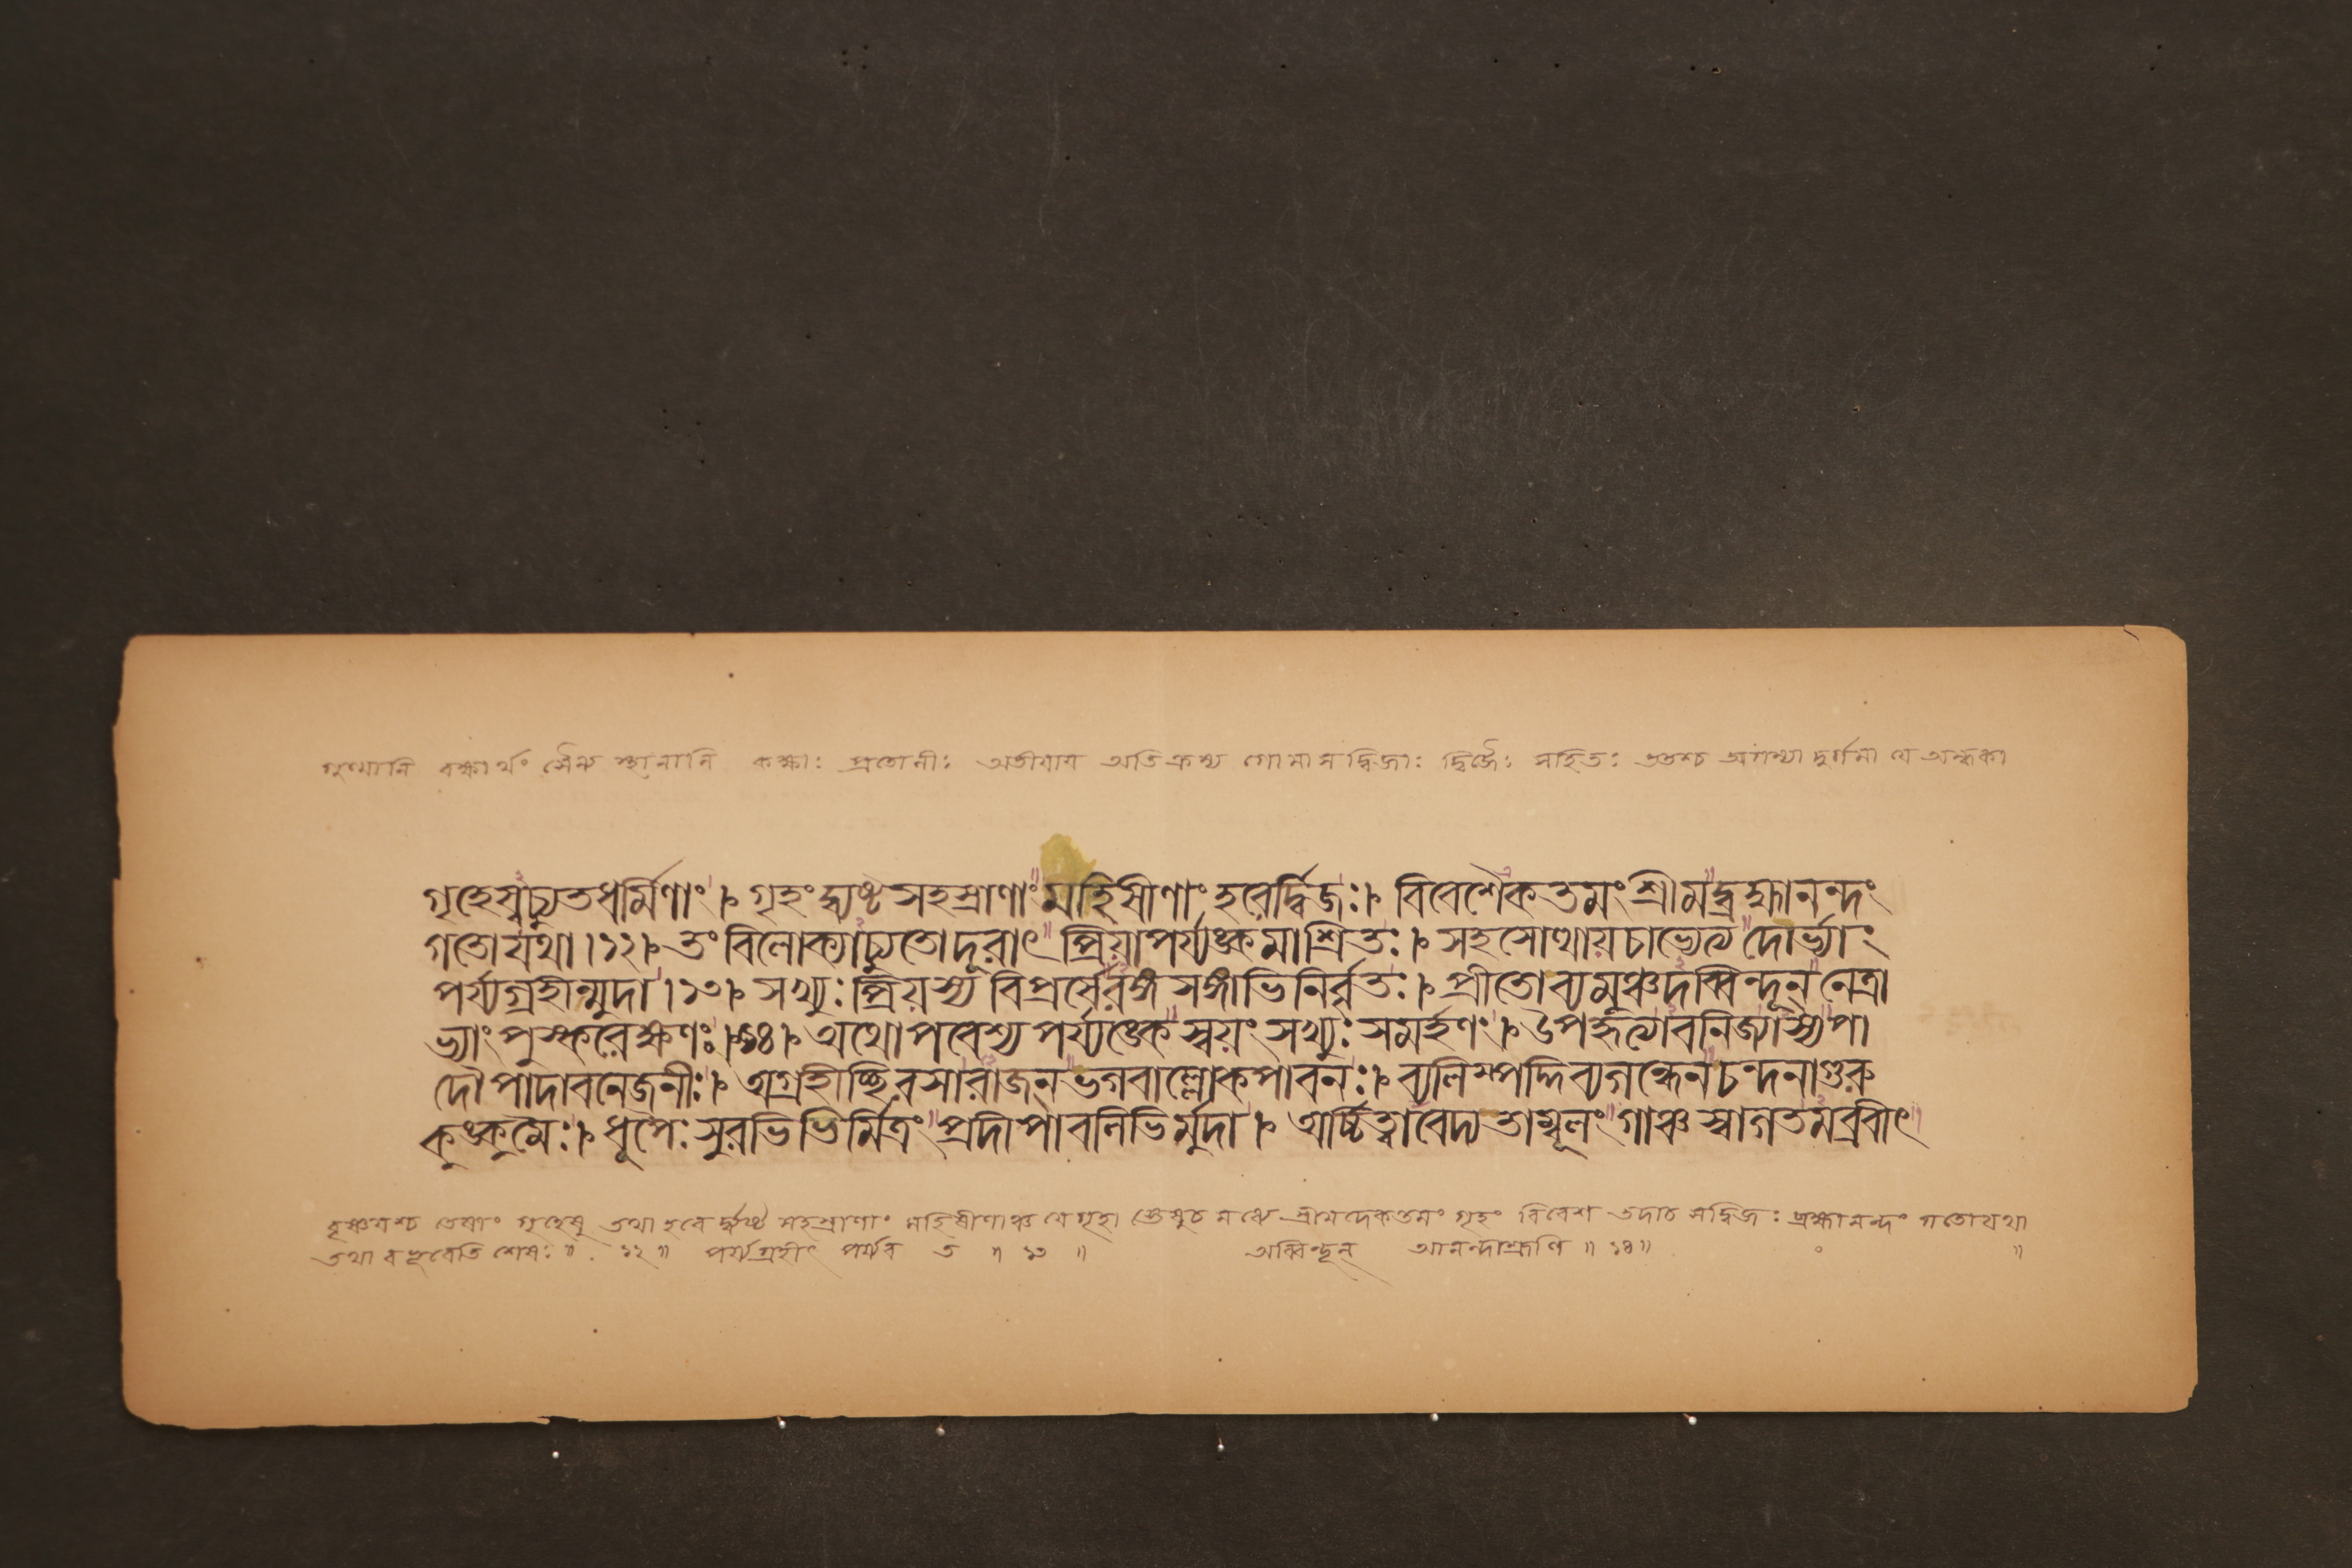 গুল্মানি রক্ষার্থং সৈন্য স্থানানি কক্ষাঃ প্রতোলীঃ অতীযায় অতিক্রম্য সদ্বিজাঃ দ্বিজৈঃ সহিতঃ ততশ্চ অগম্যা দুর্গমা যে অন্ধকা
গৃহেস্বচ্যুতধর্মিণাং। গৃহং দ্ব্যষ্ট সহস্রাণাং মহিসীণাং হরের্দ্বিজঃ। বিবেশৈকতমং শ্রীমদ্ব্রহ্মানন্দং
গতো যথা।১২। তং বিলোক্যাচ্যুতোদূরাৎ প্রিয়াপর্য্যঙ্কমাশ্রিতঃ। সহসোত্থায়চাভ্যেত্য দোর্ভ্যাং
পর্য্যগ্রহীন্মুদা।১৩। সখ্যুঃ প্রিয়স্য বিপ্রর্সেরঙ্গসঙ্গাভিনির্বৃতঃ। প্রীতোব্যমুঞ্চদব্বিন্দূন্ নেত্রা
ভ্যাং পুস্করেক্ষণঃ।১৪। অথোপবেশ্য পর্য্যঙ্কে স্বয়ং সখ্যুঃ সমর্হণং। উপহৃত্যাবনিজ্যাস্যপা
দৌ পাদাবনেজনীঃ। অগ্রহীচ্ছিরসারাজন্ ভগবাল্লোকপাবনঃ। ব্যলিম্পদ্দিব্যগন্ধেনচন্দনাগুরু
কুঙ্কুমৈঃ। ধূপৈঃ সুরভিভির্মিত্রং প্রদীপাবলিভির্মুদা। অর্চ্চিত্বাবেদ্য তাম্বূলং গাঞ্চ স্বাগতমব্রবীৎ
বৃষ্ণয়শ্চ তেষাং গৃহেষু তথা হরে দ্ব্যষ্ট সহস্রাণাং মহিষীণাঞ্চ যে গৃহা স্তেষুচ মধ্যে শ্রীমদেকতমং গৃহং বিবেশ তদাচ সদ্বিজঃ ব্রহ্মানন্দং গতোযথা
তথা বভূবেতি শেষঃ॥ ১২॥ পর্য্যগ্রহীৎ ॥ ১৩॥ অব্বিন্দূন্ আনন্দাশ্রূণি॥ ১৪॥ ॥